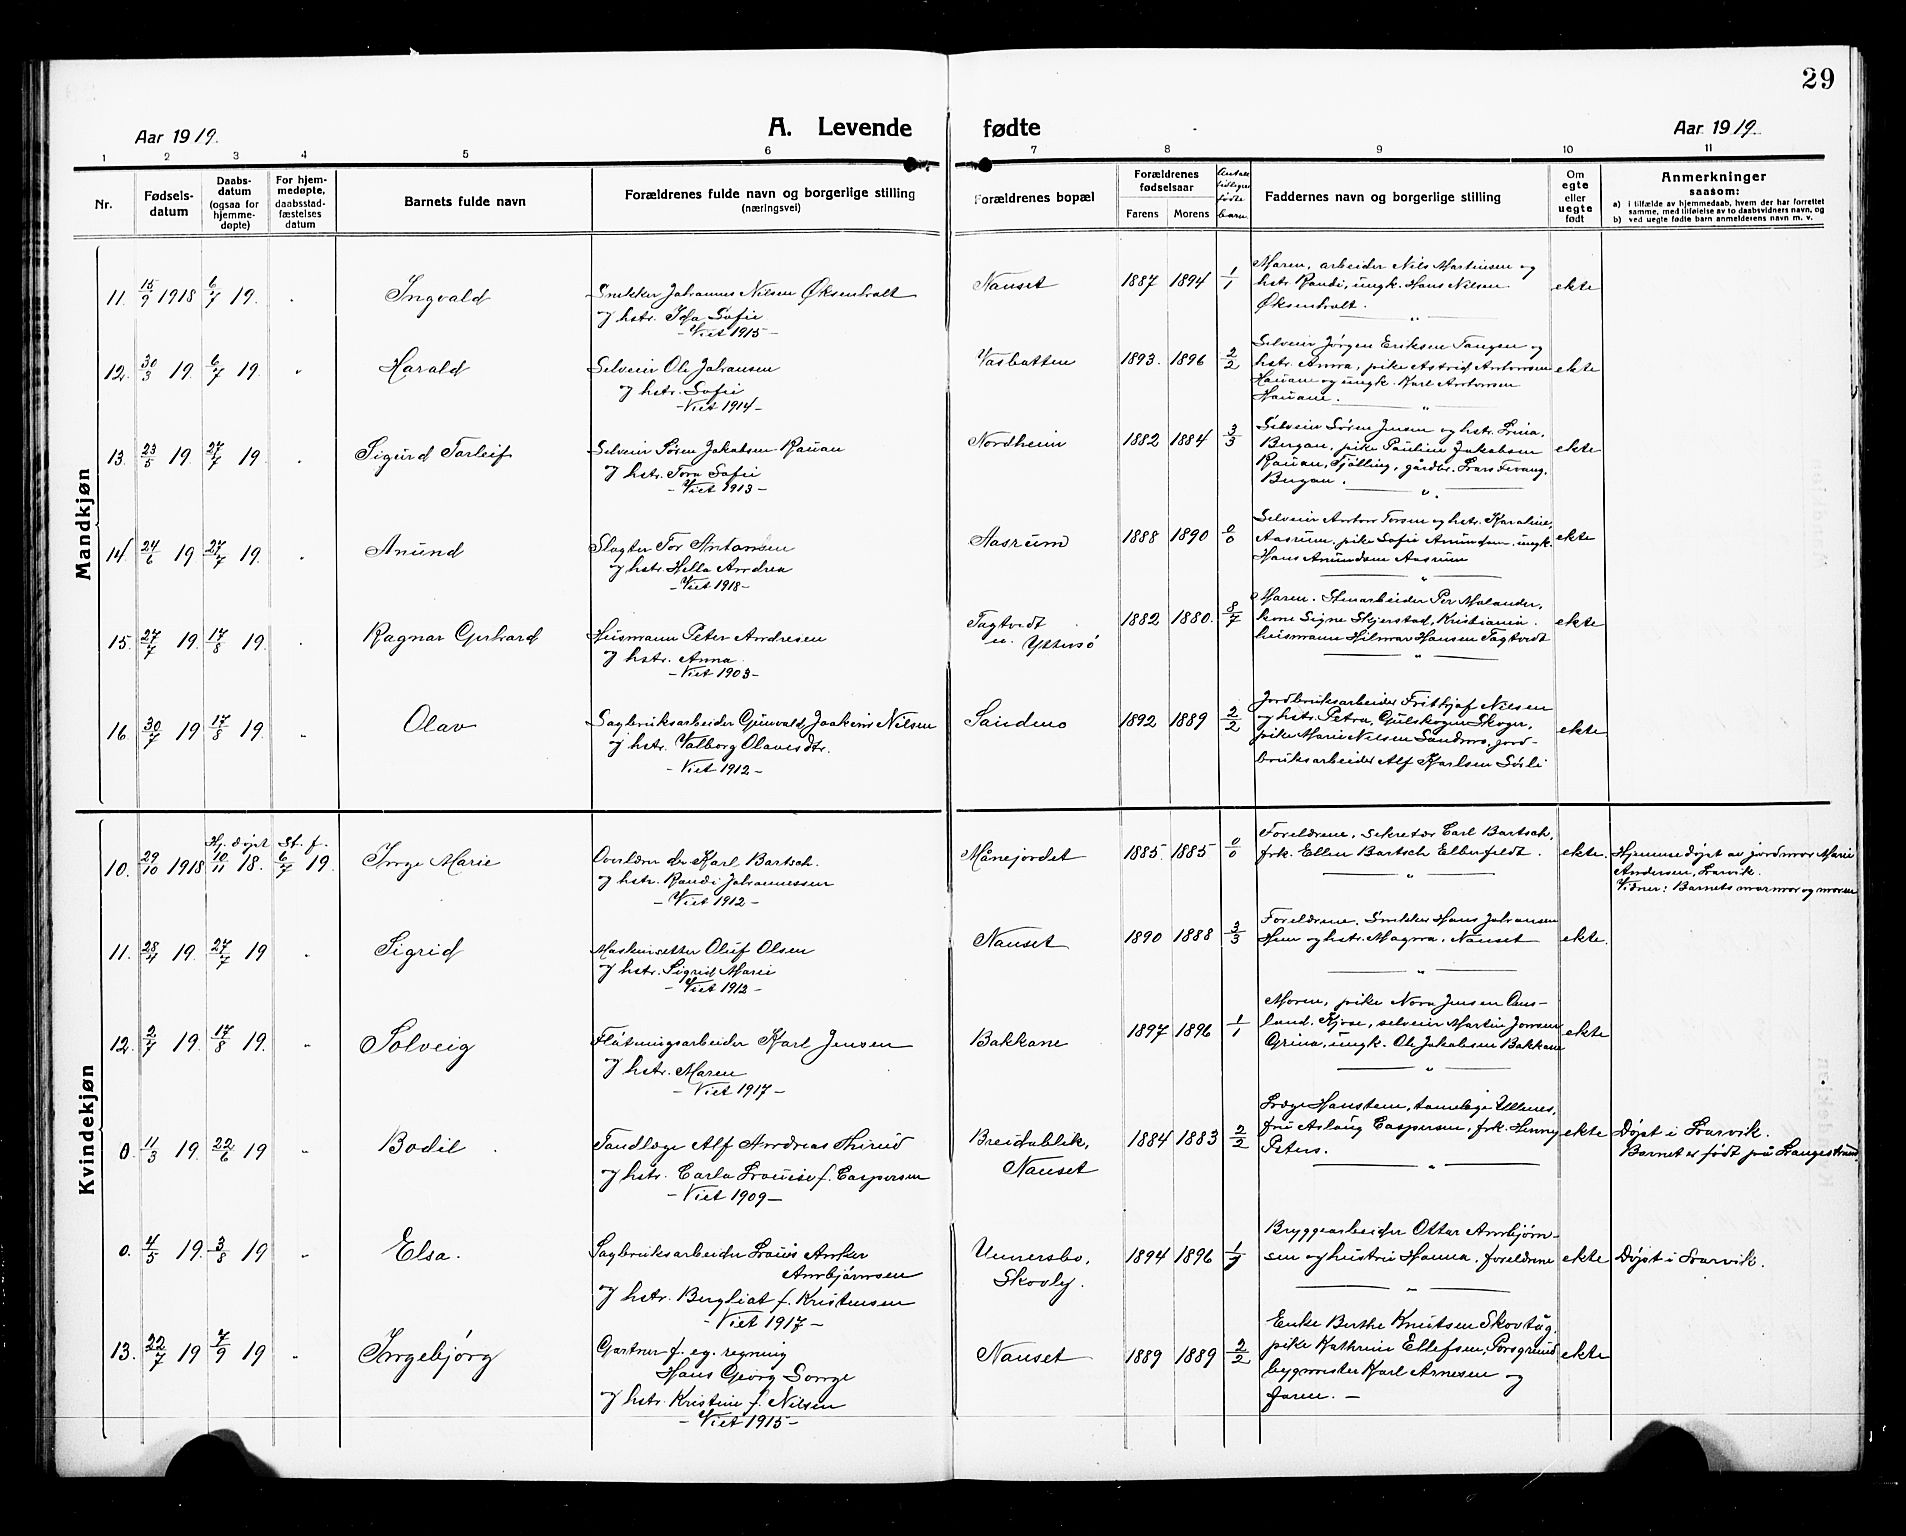 29
Aar 1919.
A. Levende fødte
Aar 1919.
1 2 3 4 5 6 7 8 9 10 11
Nr.
Fødsels-
datum
Daabs-
datum
(ogsaa for
hjemme-
døpte)
For hjem-
medøpte,
daabsstad-
fæstelses
datum
Barnets fulde navn
Forældrenes fulde navn og borgerlige stilling
(næringsvei)
Forældrenes bopæl
Forældrenes
fødselsaar
Farens Morens
Antal
tidligere
fødte
barn.
Faddernes navn og borgerlige stilling
Om
egte
eller
uegte
født
Anmerkninger
saasom:
a) i tilfælde av hjemmedaab, hvem der har forrettet
samme, med tilføielse av to daabsvidners navn, og
b) ved uegte fødte barn anmelderens navn m. v.
Mandkjøn
11. 15/9 1918 6/7 19. Ingvald
Snekker Johannes Nilsen Øksenholt
og hstr. Ida Sofie
- Viet 1915 -
Nauset 1887 1894 1/1
Moren, arbeider Nils Martinsen og
hstr. Randi, ungk. Hans Nilsen
Øksenholt.
ekte
12. 30/3 19. 6/7 19. Harald
Selveier Ole Johansen
og hstr. Sofie
- Viet 1914 -
Vasbotten 1893. 1896 2/2
Selveier Jørgen Eriksen Tangen og
hstr. Anna, pike Astrid Antonsen
Hauane og ungk. Karl Antonsen
Hauane.
ekte
13. 23/5 19. 27/7 19. Sigurd Torleif
Selveier Søren Jakobsen Rauan
og hstr. Tora Sofie
- Viet 1913 -
Nordheim 1882 1884 3/3
Selveier Søren Jensen og hstr. Lina,
Bergan, pike Pauline Jakobsen
Rauan, Tjølling, gårdbr. Lars Fevang,
Bergan.
ekte
14. 24/6 19. 27/7 19. Anund
Slagter Tor Antonsen
og hstr. Hella Andrea
- Viet 1918 -
Aasrum 1888 1890 0/0
Selveier Anton Torsen og hstr. Karoline,
Aasrum, pike Sofie Amundsen, ungk.
Hans Amundsen Aasrum
ekte
15. 27/7 19. 17/8 19. Ragnar Gerhard
Husmann Peter Andresen
og hstr. Anna.
- Viet 1903 -
Tagtvedt
u. Yttersø
1882 1880. 8/7
Moren. Stenarbeider Per Molander,
kone Signe Skjerstad, Kristiania.
husmann Hilmar Hansen Tagtvedt
ekte
16. 30/7 19 17/8 19. Olav
Sagbruksarbeider Gunvald Joakim Nilsen
og hstr. Valborg Olavesdtr.
- Viet 1912 -
Sandmo 1892 1889 2/2
Jordbruksarbeider Frithjof Nilsen
og hstr. Petra, Gulskogen Skoger,
pike Marie Nilsen Sandmo, jord-
bruksarbeider Alf Karlsen Sørli
ekte
Kvindekjøn
Hj. døpt St. f.
10. 29/10 1918 10/11 18. 6/7 19. Inge Marie
Overlærer dr. Karl Bartsch.
og hstr. Randi Johannessen
- Viet 1912 -
Månejordet 1885 1885 0/0
Foreldrene, sekretær Carl Bartsch,
frk. Ellen Bartsch Elberfeldt.
ekte.
Hjemmedøpt av jordmor Marie
Andersen, Larvik.
Vidner: Barnets mormor og moren
11. 28/4 19. 27/7 19 Sigrid
Maskinsetter Oluf Olsen
og hstr. Sigrid Marie
- Viet 1912 -
Nauset 1890 1888 3/3
Foreldrene. Snekker Hans Johansen
Hem og hstr. Magna, Nauset
ekte.
12. 2/7 19. 17/8 19. Solveig
Fløtningsarbeider Karl Jensen
og hstr. Maren
- Viet 1917 -
Bakkane 1897 1896 1/1
Moren, pike Nora Jensen Ono-
land. Kjose, selveier Martin Jonsen
Grina, ungk. Ole Jakobsen Bakkane
ekte
0. 11/3 19. 22/6 19 Bodil
Tandlæge Alf Andreas Thirud
og hstr. Carla Louise f. Caspersen
- Viet 1909 -
Breidablik,
Nauset
1884 1883 2/2
Læge Hansteen, tannlege Ullnes,
frü Aslaug Caspersen, frk. Henny
Peters.
ekte
Døpt i Larvik.
Barnet er født på Langestrand.
0. 4/5 19. 3/8 19 Elsa.
Sagbruksarbeider Louis Anker
Arnbjørnsen
og hstr. Bergliot f. Kristensen
- Viet 1917 -
Unnersbo,
Skovly.
1894 1896
Bryggearbeider Ottar Arnbjørn-
sen og hustru Hanna, foreldrene
ekte
Døpt i Larvik.
13. 22/7 19 7/9 19 Ingebjørg
Gartner f. eg. regning
Hans Georg Sorge
og hstr. Kristine f. Nilsen
- Viet 1915 -
Nauset 1889 1889 2/2
Enke Berthe Knutsen Skovtug,
pike Kathrine Ellefsen, Porsgrund
byggmester Karl Arnesen og
faren. -
ekte